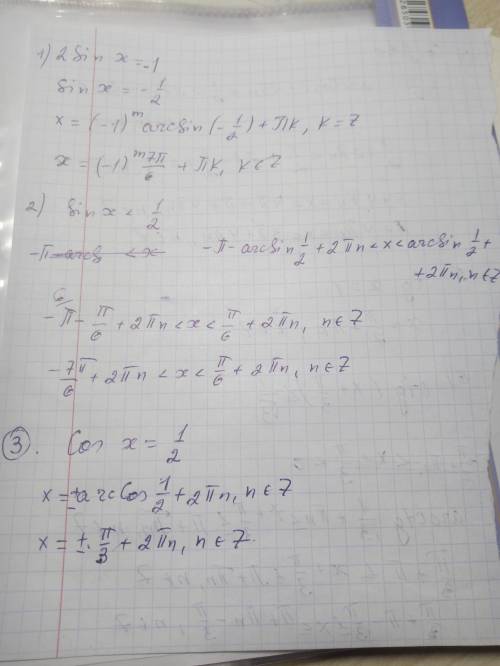 1) 2 sin x = -1
sin x = - 1/2
x = (-1)^m arcsin (- 1/2) + πk, k = Z
x = (-1)^m 7π/6 + πk, k ∈ Z
2) sin x < 1/2
-π - arcs < x -π - arcsin 1/2 + 2πn < x < arcsin 1/2 +
+ 2πn, n ∈ Z
6/ -π - π/6 + 2πn < x < π/6 + 2πn, n ∈ Z
- 7π/6 + 2πn < x < π/6 + 2πn, n ∈ Z
3. Cos x = 1/2
x = ± arccos 1/2 + 2πn, n ∈ Z
x = ± π/3 + 2πn, n ∈ Z.